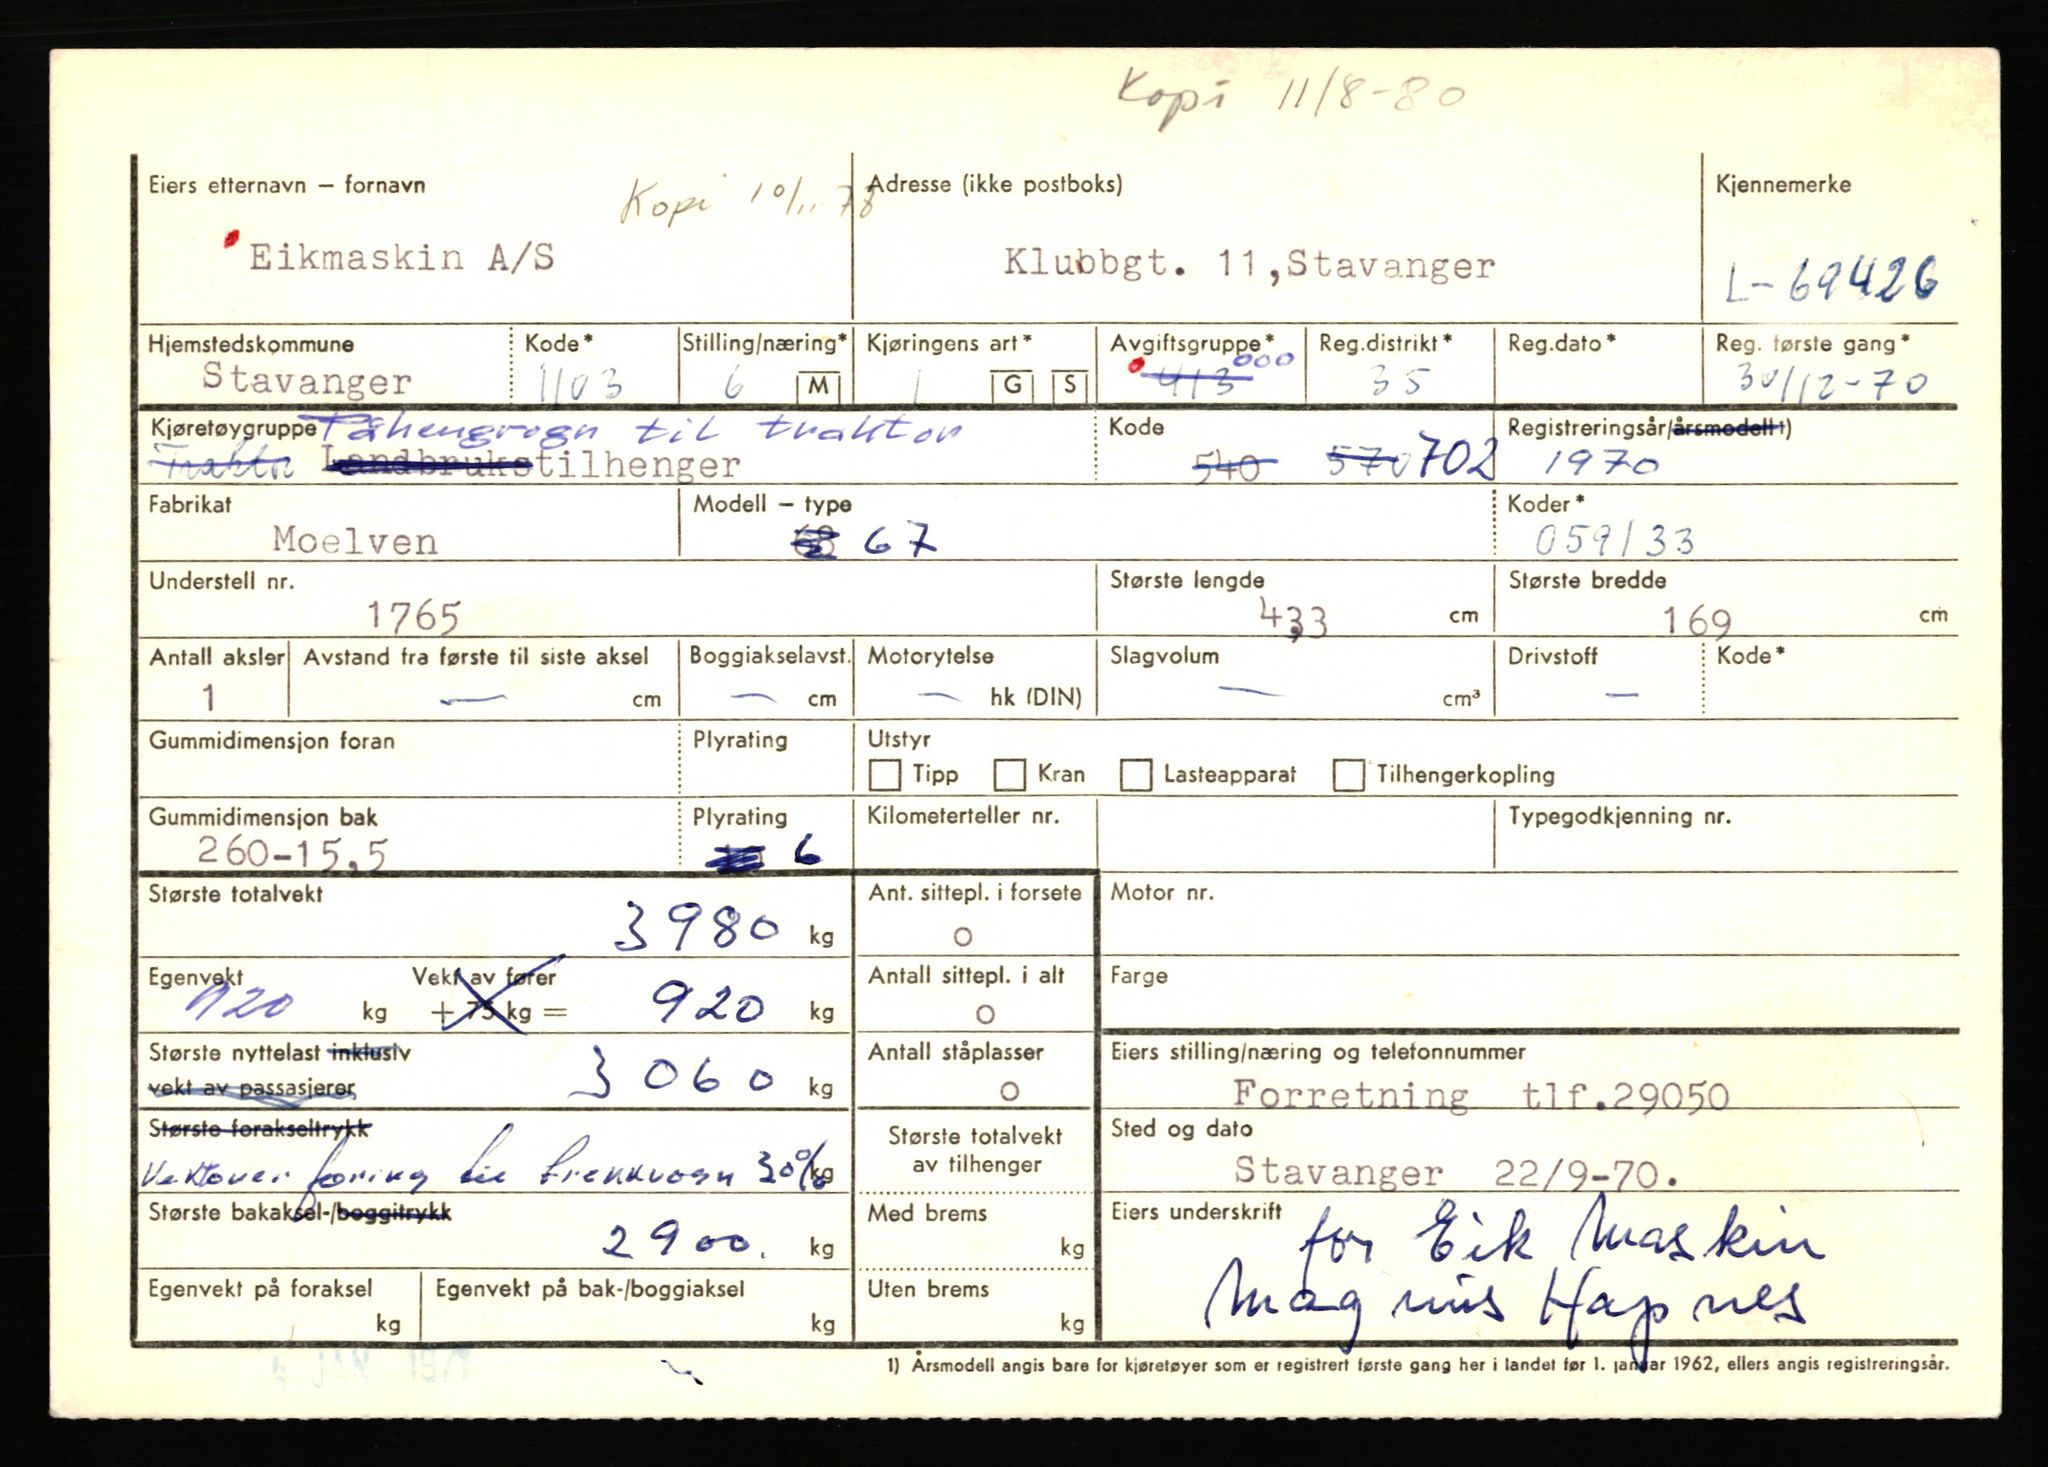 Kopi 11/8-80
Eiers etternavn – fornavn
Kopi 10/11-78
Adresse (ikke postboks)
Kjennemerke
Eikmaskin A/S
Klubbgt. 11,Stavanger
L-69426
Hjemstedskommune
Kode*
Stilling/næring*
Kjøringens art*
Avgiftsgruppe*
Reg.distrikt*
Reg.dato*
Reg. første gang*
Stavanger
1103
6
M
1
G
S
413 000
35
30/12-70
Kjøretøygruppe Påhengsvogn til traktor
Traktor Landbrukstilhenger
Kode
540 570 702
Registreringsår/årsmodell 1)
1970
Fabrikat
Moelven
Modell – type
68 67
Koder*
059/33
Understell nr.
1765
Største lengde
433 cm
Største bredde
169 cm
Antall aksler
1
Avstand fra første til siste aksel
— cm
Boggiakselavst.
— cm
Motorytelse
— hk (DIN)
Slagvolum
— cm³
Drivstoff
—
Kode*
Gummidimensjon foran
Plyrating
Utstyr
Tipp Kran Lasteapparat Tilhengerkopling
Gummidimensjon bak
260-15,5
Plyrating
6
Kilometerteller nr.
Typegodkjenning nr.
Største totalvekt
3980 kg
Ant. sittepl. i forsete
0
Motor nr.
Egenvekt
920 kg
Vekt av fører
+ 75 kg =
920 kg
Antall sittepl. i alt
0
Farge
Største nyttelast inklusiv
vekt av passasjerer
3060 kg
Antall ståplasser
0
Eiers stilling/næring og telefonnummer
Forretning tlf.29050
Største forakseltrykk
Vektoverføring til trekkvogn 30% kg
Største totalvekt
av tilhenger
Sted og dato
Stavanger 22/9-70.
Største bakaksel-/boggitrykk
2900. kg
Med brems
kg
Eiers underskrift
for Eik Maskin
Magnus Hapnes
Egenvekt på foraksel
kg
Egenvekt på bak-/boggiaksel
kg
Uten brems
kg
1) Årsmodell angis bare for kjøretøyer som er registrert første gang her i landet før 1. januar 1962, ellers angis registreringsår.